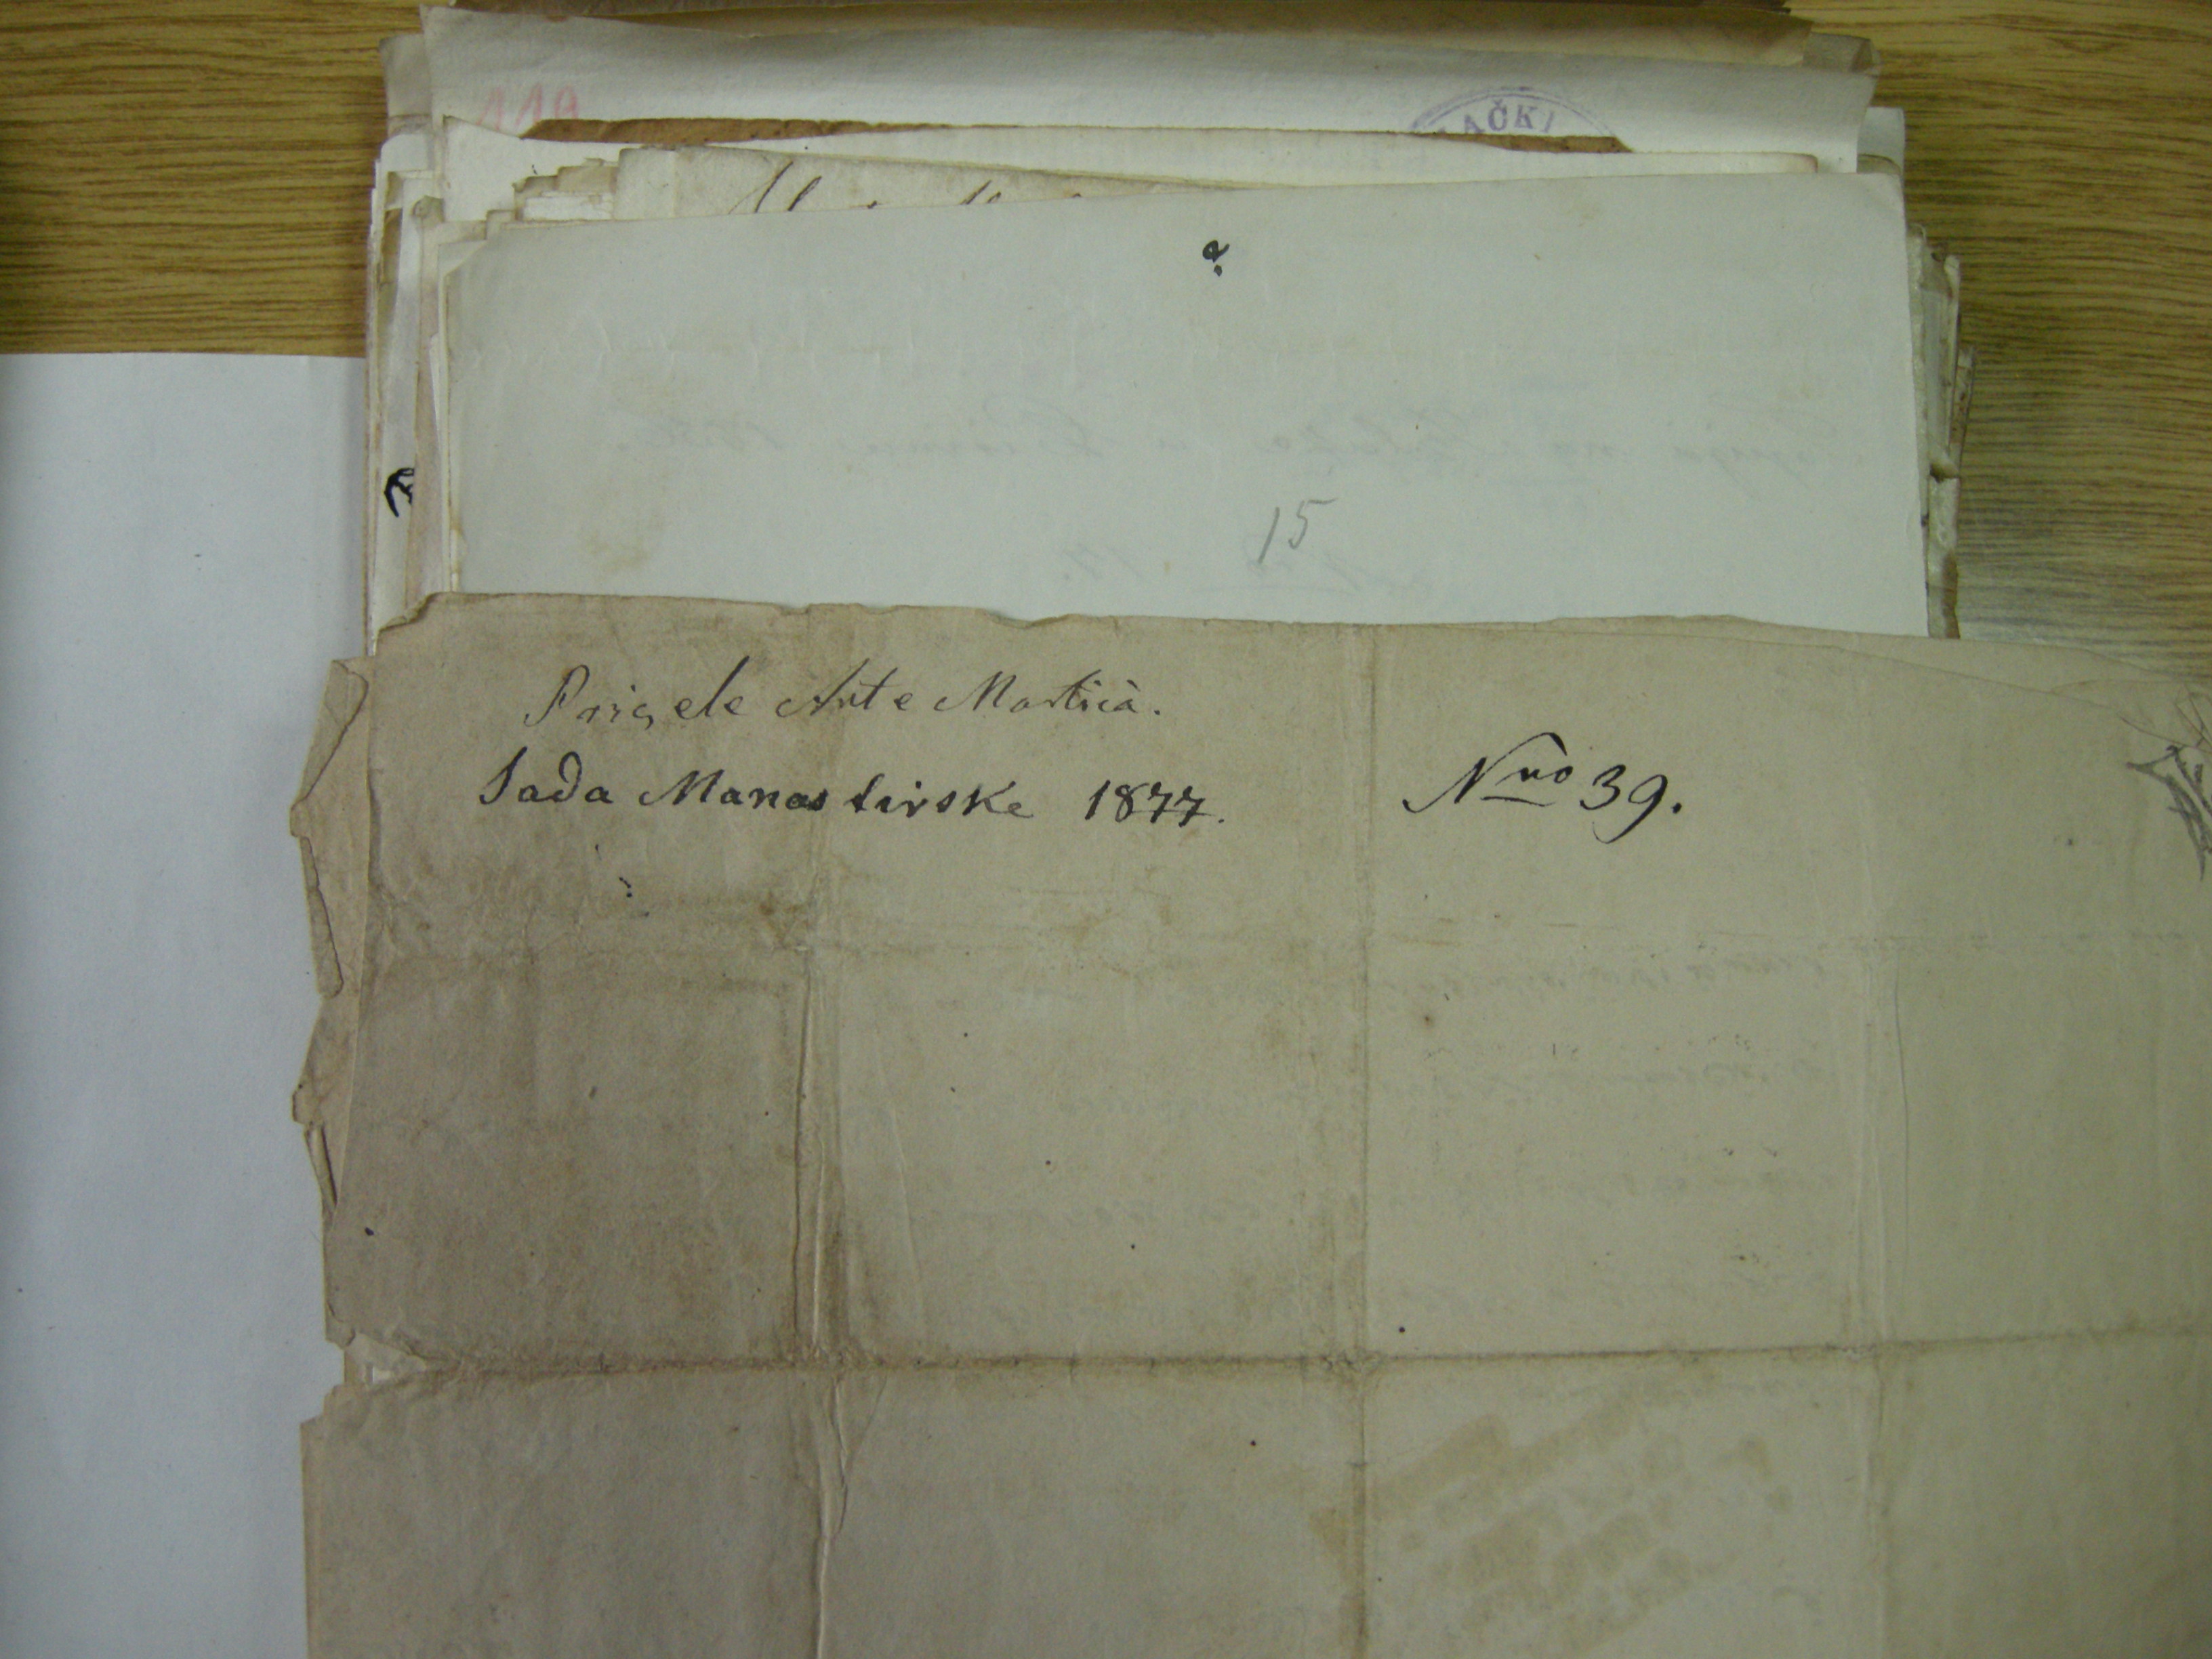 119
AČKI
?
15
Prigele Ante Martića.
Sada Manastirske 1877.
Nro 39.